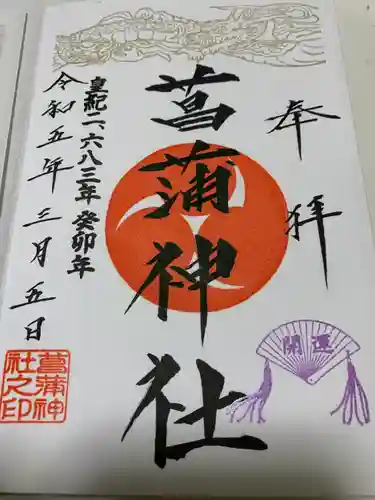 奉拝
菖蒲神社
皇紀二、六八三年 癸卯年
令和五年三月五日
開運
菖蒲神
社之印